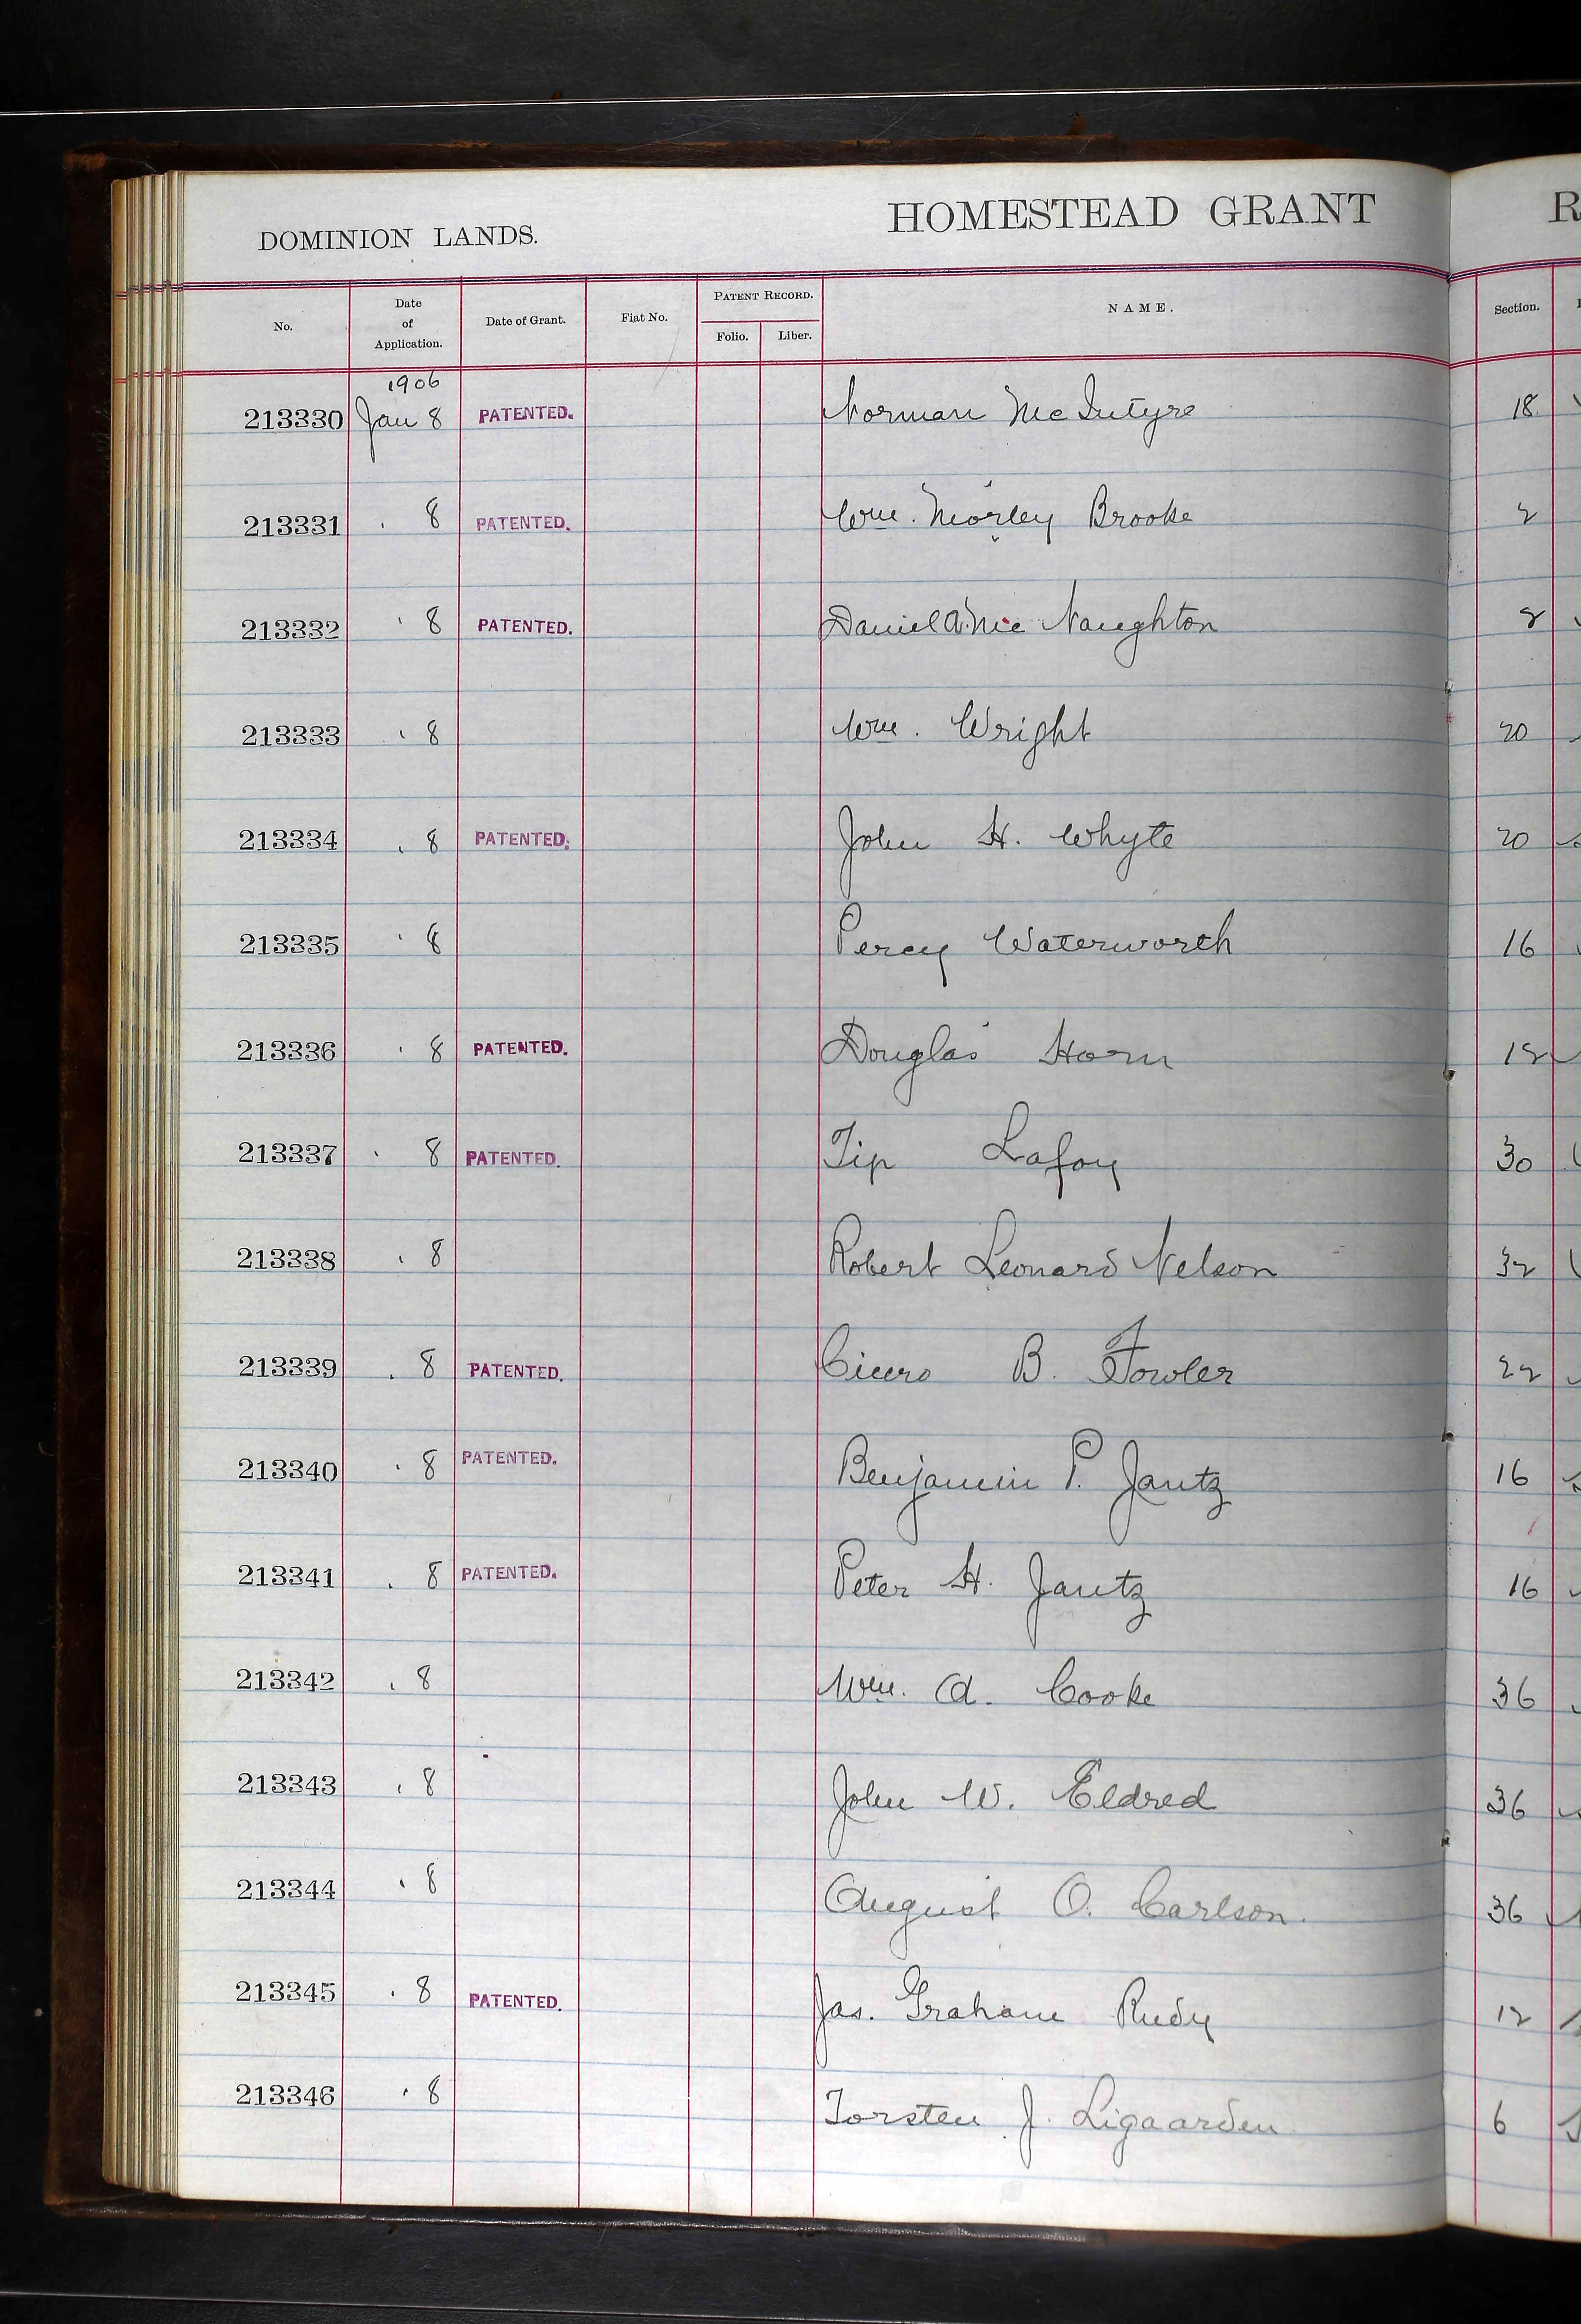 DOMINION LANDS. HOMESTEAD GRANT R
No. Date of Application. Date of Grant. Fiat No. PATENT RECORD. Folio. Liber. NAME. Section.
1906
213330 Jan 8 PATENTED. Norman McIntyre 18
213331 . 8 PATENTED. Wm. Morley Brooke 2
213332 . 8 PATENTED. Daniel A. Mc Naughton 2
213333 . 8 Wm. Wright 20
213334 . 8 PATENTED. John H. Whyte 20
213335 . 8 Percy Waterworth 16
213336 . 8 PATENTED. Douglas Horn 12
213337 . 8 PATENTED. Tip Lafoy 30
213338 . 8 Robert Leonard Nelson 32
213339 . 8 PATENTED. Cicero B. Fowler 22
213340 . 8 PATENTED. Benjamin P. Jantz 16
213341 . 8 PATENTED. Peter H. Jantz 16
213342 . 8 Wm. A. Cooke 36
213343 . 8 John W. Eldred 36
213344 . 8 August O. Carlson. 36
213345 . 8 PATENTED. Jas. Graham Rudy 12
213346 . 8 Torsten J. Ligaarden 6